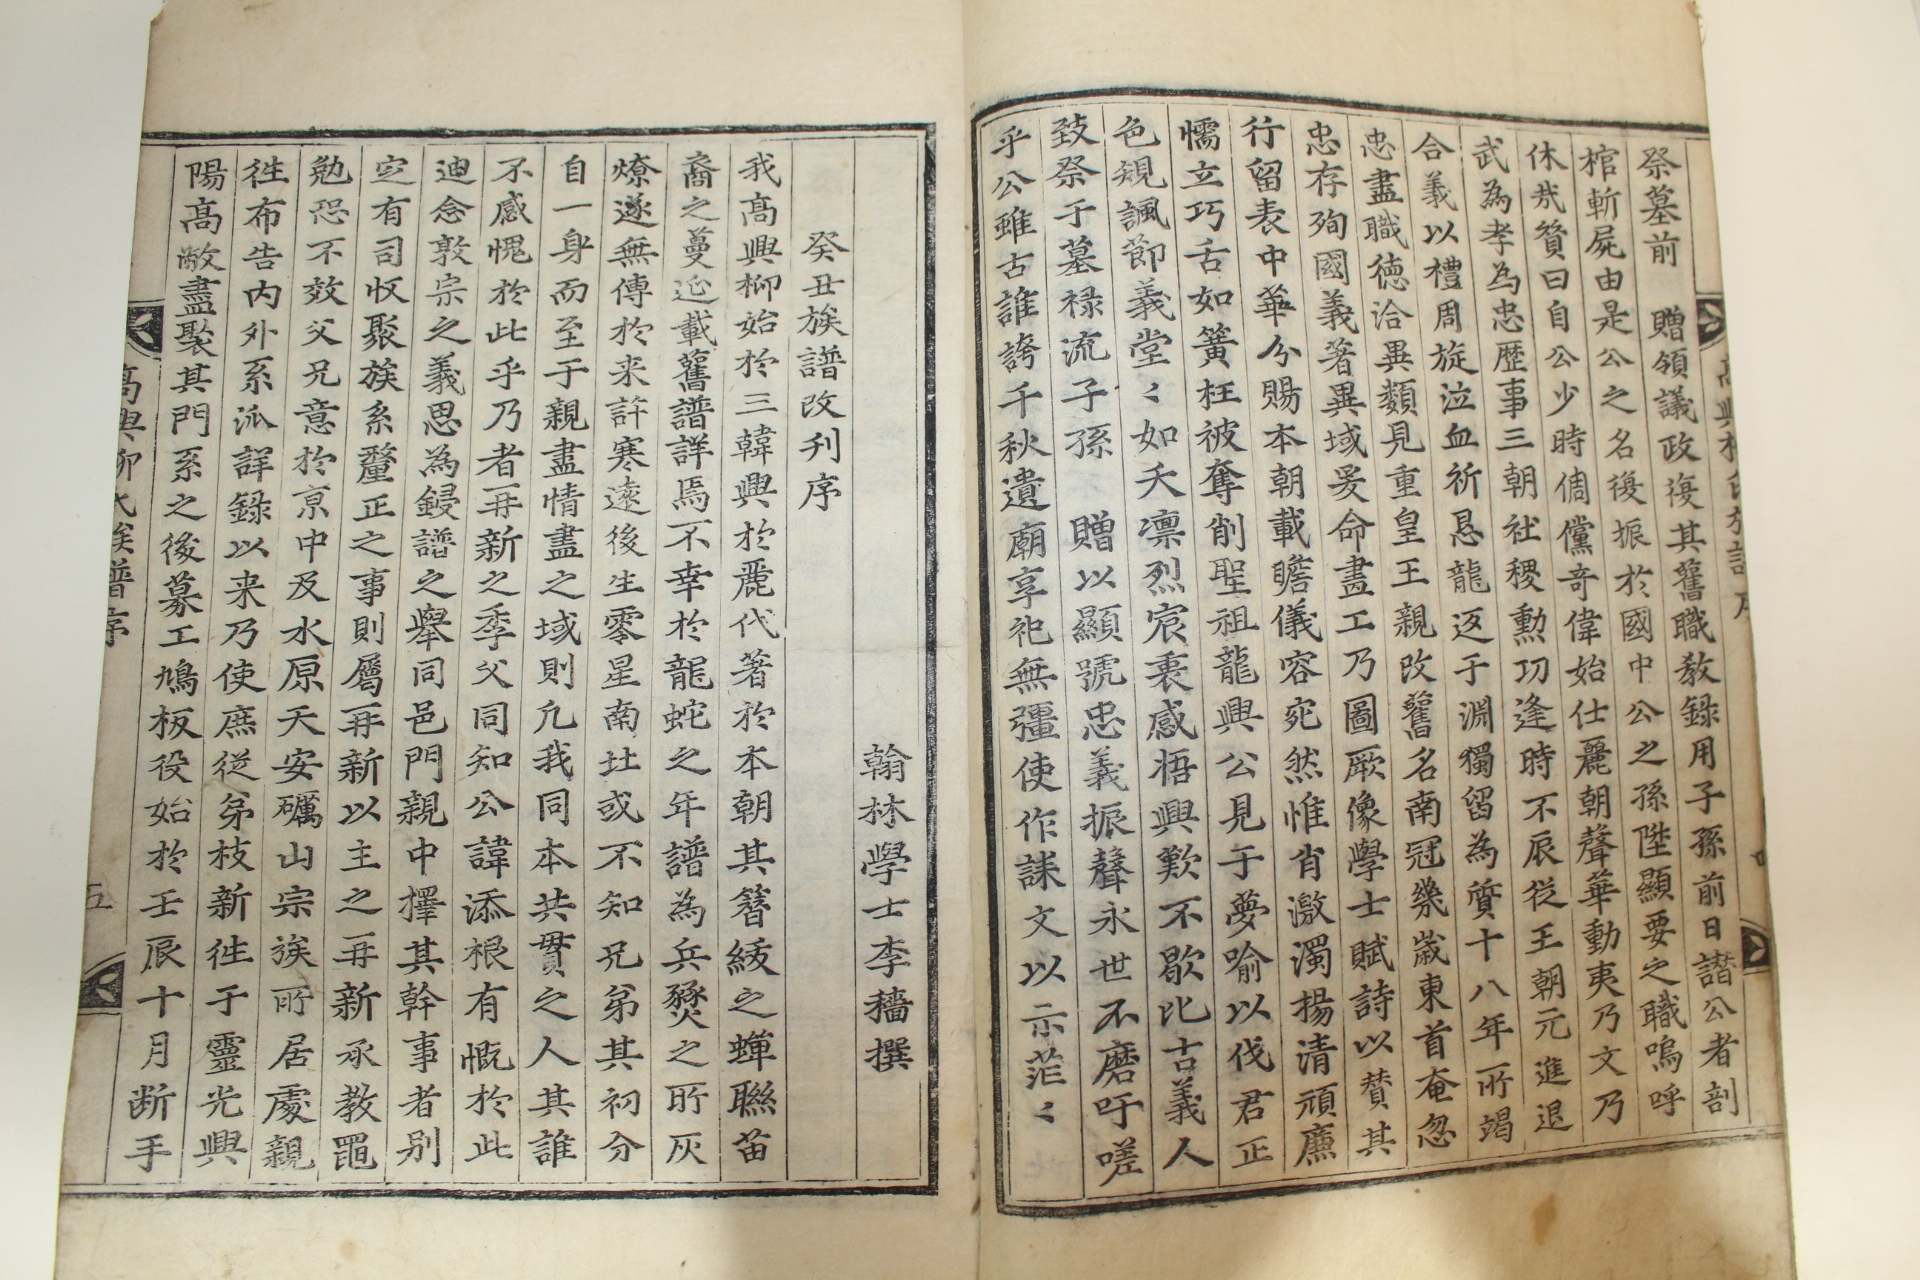 高興柳氏族譜序
祭墓前 贈領議政復其舊職敎錄用子孫前日譖公者剖
棺斬屍由是公之名復振於國中公之孫陞顯要之職嗚呼
休㢤贊曰自公少時倜儻奇偉始仕麗朝聲華動夷乃文乃
武為孝為忠歷事三朝社稷勳功逢時不辰從王朝元進退
合義以禮周旋泣血祈恳龍返于淵獨留為質十八年所竭
忠盡職德洽異類見重皇王親改舊名南冠幾歲東首奄忽
忠存殉國義著異域爰命畫工乃圖厥像學士賦詩以賛其
行留表中華分賜本朝載瞻儀容宛然惟肖激濁揚清頑廉
懦立巧舌如簧枉被奪削聖祖龍興公見于夢喻以伐君正
色規諷節義堂〻如夭凛烈宸裏感悟興歎不歇比古義人
致祭于墓禄流子孫 贈以顯號忠義振聲永世不磨吁嗟
乎公雖古誰誇千秋遺廟享祀無彊使作誄文以示茫〻
翰林學士李穡撰
癸丑族譜改刋序
我髙興柳始於三韓興於麗代著於本朝其簪緌之蟬聯苗
裔之蔓延載舊譜詳焉不幸於龍蛇之年譜為兵燹之所灰
燎遂無傳於来許寒遠後生零星南北或不知兄弟其初分
自一身而至于親盡情盡之域則凡我同本共貫之人其誰
不感愧於此乎乃者再新之季父同知公諱添根有慨於此
迪念敦宗之義思為鋟譜之舉同邑門親中擇其幹事者别
定有司收聚族系釐正之事則屬再新以主之再新承教黽
勉恐不效父兄意於京中及水原天安礪山宗族所居處親
徃布告内外系派詳録以来乃使庶從弟枝新徃于靈光興
陽髙敞盡聚其門系之後募工鳩板役始於壬辰十月断手
髙興柳氏族譜序
五